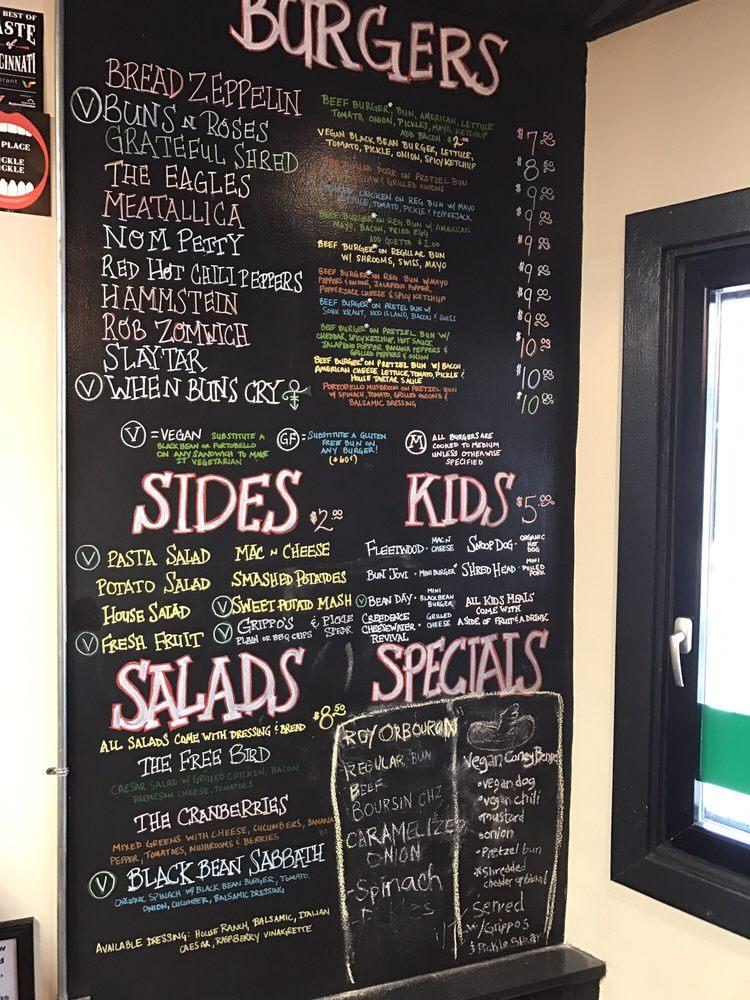 BEST OF
TASTE
of
CINCINNATI
PLACE
BURGERS
BREAD ZEPPELIN
Ⓥ BUNS N ROSES
GRATEFUL SHRED
THE EAGLES
MEATALLICA
NOM PETTY
RED HOT CHILI PEPPERS
HAMMSTEIN
ROB ZOMWICH
SLAYTAR
Ⓥ WHEN BUNS CRY
BEEF BURGER* BUN, AMERICAN, LETTUCE
TOMATO, ONION, PICKLES, MAYO, KETCHUP
ADD BACON $2.00
VEGAN BLACK BEAN BURGER, LETTUCE,
TOMATO, PICKLE, ONION, SPICY KETCHUP
PORK ON PRETZEL BUN
SLAW & GRILLED ONIONS
CHICKEN ON REG BUN W/ MAYO
LETTUCE, TOMATO, PICKLE & PEPPERJACK
BEEF BURGER* ON REG. BUN W/ AMERICAN
MAYO, BACON, FRIED EGG
ADD GOETTA $2.00
BEEF BURGER* ON REGULAR BUN
W/ SHROOMS, SWISS, MAYO
BEEF BURGER* ON REG BUN W/ MAYO
PEPPERS & ONIONS, JALAPENO POPPER,
PEPPERJACK CHEESE & SPICY KETCHUP
BEEF BURGER* ON PRETEL BUN W/
SOUR KRAUT, 1000 ISLAND, BACON & SWISS
BEEF BURGER* ON PRETZEL BUN W/
CHEDDAR, SPICY KETCHUP, HOT SAUCE,
JALAPENO POPPER BANANA PEPPERS &
GRILLED PEPPERS & ONION
BEEF BURGER* ON PRETZEL BUN W/ BACON
AMERICAN CHEESE, LETTUCE, TOMATO, PICKLE &
HOUSE TARTAR SAUCE
PORTOBELLO MUSHROOM ON PRETZEL BUN
W/ SPINACH, TOMATO, GRILLED ONIONS &
BALSAMIC DRESSING
$7.50
$8.50
$9.00
$9.00
$9.00
$9.00
$9.00
$9.00
$10.00
$10.00
$10.00
Ⓥ = VEGAN SUBSTITUTE A
BLACK BEAN OR PORTOBELLO
ON ANY SANDWICH TO MAKE
IT VEGETARIAN
GF = SUBSTITUTE A GLUTEN
FREE BUN ON
ANY BURGER!
(+60¢)
Ⓜ ALL BURGERS ARE
COOKED TO MEDIUM
UNLESS OTHERWISE
SPECIFIED
SIDES $2.00
Ⓥ PASTA SALAD
POTATO SALAD
HOUSE SALAD
Ⓥ FRESH FRUIT
MAC N CHEESE
SMASHED POTATOES
Ⓥ SWEET POTATO MASH
Ⓥ GRIPPO'S & PICKLE
PLAIN OR BBQ CHIPS SPEAR
KIDS $5.00
FLEETWOOD · MAC N CHEESE
BUN JOVI · MINI BURGER*
Ⓥ BEAN DAY · MINI BLACK BEAN BURGER
CREEDENCE
CHEESEWATER · GRILLED CHEESE
REVIVAL
SNOOP DOG · ORGANIC HOT DOG
SHRED HEAD · MINI PULLED PORK
ALL KIDS MEALS
COME WITH
A SIDE OF FRUIT & A DRINK
SALADS $8.50
ALL SALADS COME WITH DRESSING & BREAD
THE FREE BIRD
CAESAR SALAD W/ GRILLED CHICKEN, BACON
PARMESAN CHEESE, TOMATOES
THE CRANBERRIES
MIXED GREENS WITH CHEESE, CUCUMBERS, BANANA
PEPPER, TOMATOES, MUSHROOMS & BERRIES
Ⓥ BLACK BEAN SABBATH
ORGANIC SPINACH W/ BLACK BEAN BURGER, TOMATO
ONION, CUCUMBER, BALSAMIC DRESSING
AVAILABLE DRESSING: HOUSE RANCH, BALSAMIC, ITALIAN
CAESAR, RASPBERRY VINAGRETTE
SPECIALS
ROY ORBOURGN
REGULAR BUN
BEEF
BOURSIN CHZ
CARAMELIZED
ONION
-Spinach
-Pickles
Vegan Coney
•vegan dog
•vegan chili
•mustard
•onion
•Pretzel bun
*Shredded
cheddar optional
Served
w/Grippos
& Pickle Spear